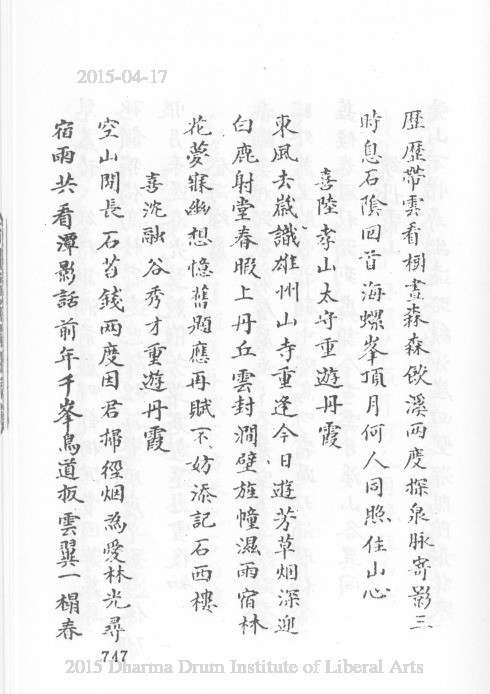 2015-04-17
歷歷帶雲看樹晝森森欹溪兩度探泉脉寄影三
時息石陰回首海螺峯頂月何人同照住山心
喜陸孝山太守重遊丹霞
東風去歲識雄州山寺重逢今日遊芳草烟深迎
白鹿射堂春暇上丹丘雲封澗壁旌幢濕雨宿林
花夢寐幽想憶舊題應再賦不妨添記石西樓
喜沈融谷秀才重遊丹霞
空山閒長石苔錢兩度因君掃徑烟為愛林光尋
宿雨共看潭影話前年千峯鳥道扳雲翼一榻春
747
2015 Dharma Drum Institute of Liberal Arts